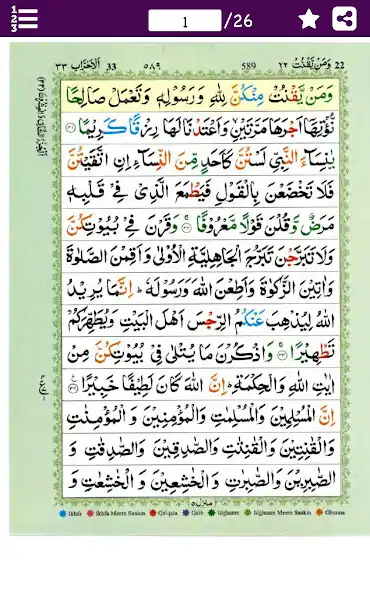 1 /26
22 وَمَنْ يَّقْنُتْ ٢٢ 589 ٥٨٩ 33 اَلْاَحْزَاب ٣٣
وَمَنْ يَّقْنُتْ مِنْكُنَّ لِلّٰهِ وَرَسُوْلِهٖ وَتَعْمَلْ صَالِحًا
نُّؤْتِهَاۤ اَجْرَهَا مَرَّتَيْنِۙ وَاَعْتَدْنَا لَهَا رِزْقًا كَرِيْمًا ﴿٣١﴾
يٰنِسَآءَ النَّبِيِّ لَسْتُنَّ كَاَحَدٍ مِّنَ النِّسَآءِ اِنِ اتَّقَيْتُنَّ
فَلَا تَخْضَعْنَ بِالْقَوْلِ فَيَطْمَعَ الَّذِيْ فِيْ قَلْبِهٖ
مَرَضٌ وَّقُلْنَ قَوْلًا مَّعْرُوْفًا ﴿٣٢﴾ وَقَرْنَ فِيْ بُيُوْتِكُنَّ
وَلَا تَبَرَّجْنَ تَبَرُّجَ الْجَاهِلِيَّةِ الْاُوْلٰى وَاَقِمْنَ الصَّلٰوةَ
وَاٰتِيْنَ الزَّكٰوةَ وَاَطِعْنَ اللّٰهَ وَرَسُوْلَهٗ ؕ اِنَّمَا يُرِيْدُ
اللّٰهُ لِيُذْهِبَ عَنْكُمُ الرِّجْسَ اَهْلَ الْبَيْتِ وَيُطَهِّرَكُمْ
تَطْهِيْرًا ﴿٣٣﴾ وَاذْكُرْنَ مَا يُتْلٰى فِيْ بُيُوْتِكُنَّ مِنْ
اٰيٰتِ اللّٰهِ وَالْحِكْمَةِ ؕ اِنَّ اللّٰهَ كَانَ لَطِيْفًا خَبِيْرًا ﴿٣٤﴾
اِنَّ الْمُسْلِمِيْنَ وَالْمُسْلِمٰتِ وَالْمُؤْمِنِيْنَ وَالْمُؤْمِنٰتِ
وَالْقٰنِتِيْنَ وَالْقٰنِتٰتِ وَالصّٰدِقِيْنَ وَالصّٰدِقٰتِ وَ
الصّٰبِرِيْنَ وَالصّٰبِرٰتِ وَالْخٰشِعِيْنَ وَ الْخٰشِعٰتِ وَ
منزل ٥
Ikhfa Ikhfa Meem Saakin Qalqala Qalb Idghaam Idghaam Meem Saakin Ghunna